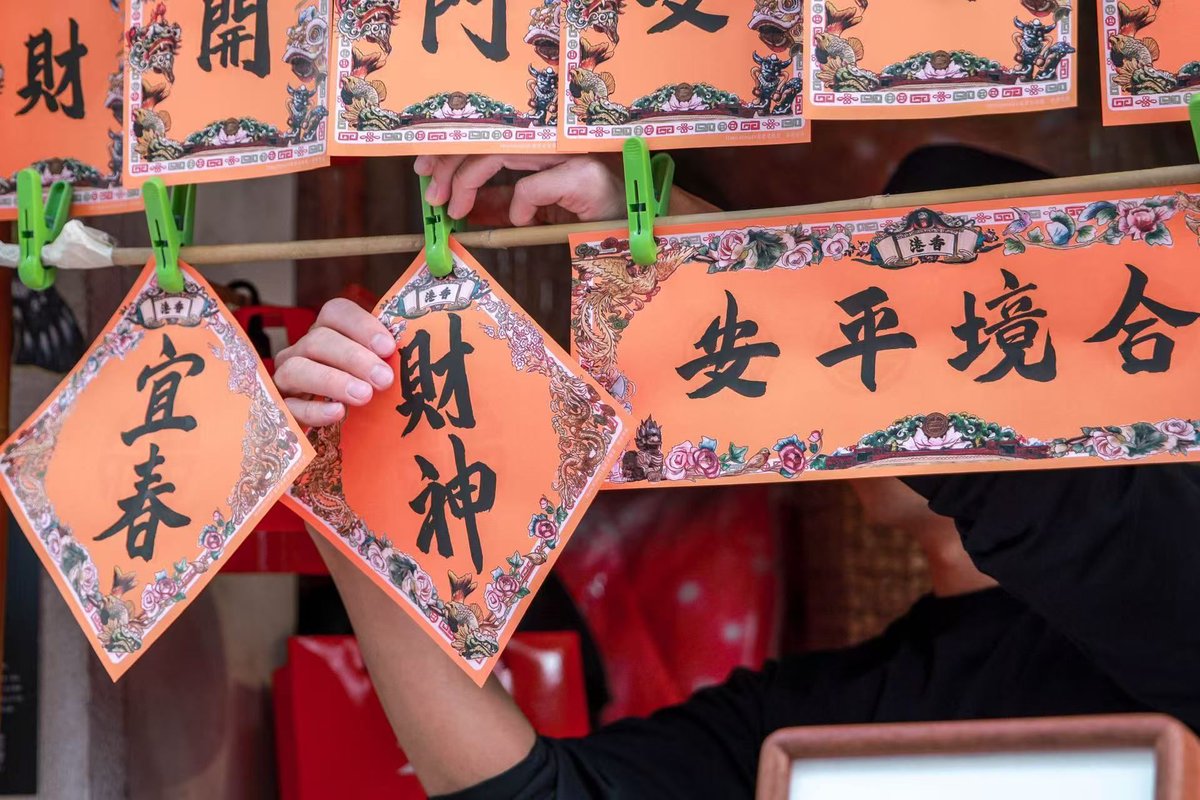 財
開
門
香港
宜春
香港
財神
香港
合境平安